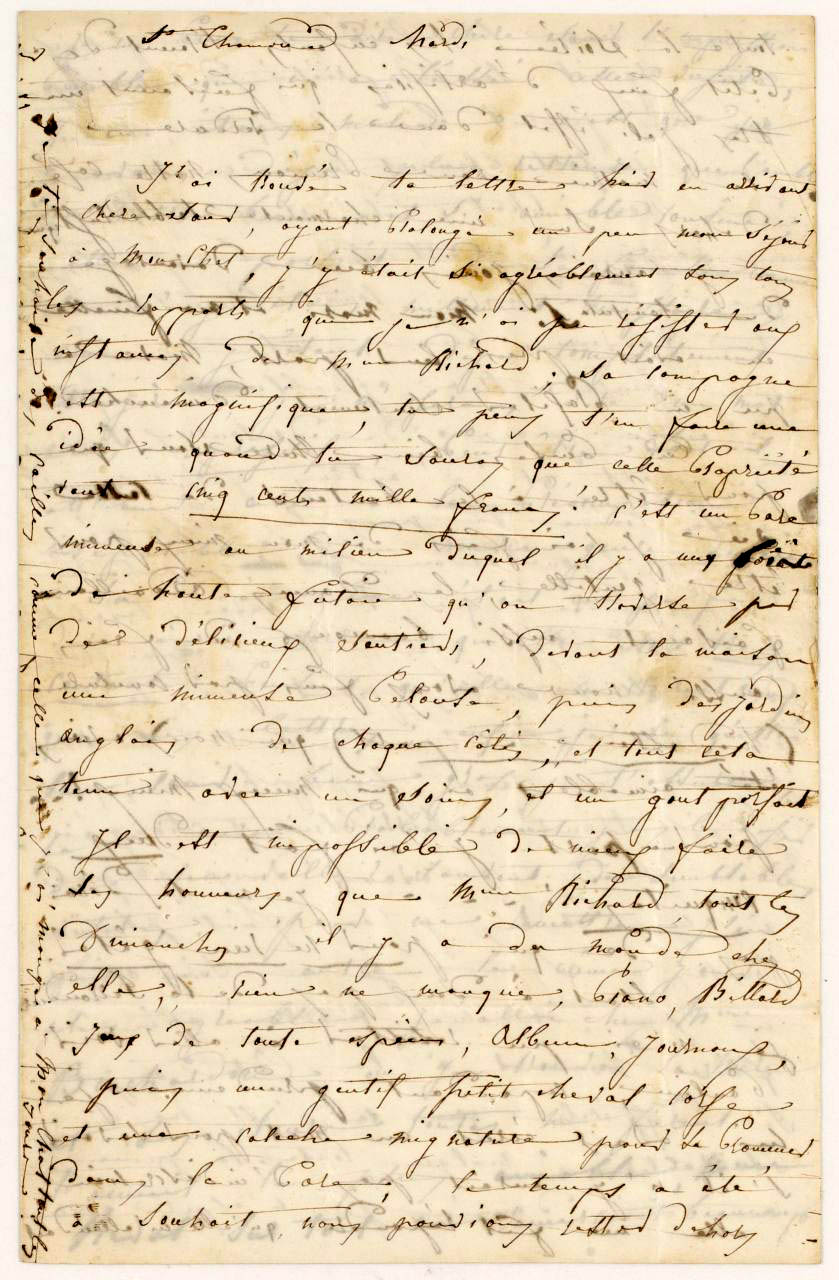 St Chamond Mardi
J'ai trouvé ta lettre hier en arrivant
chere, ayant Prolongé un peu mon séjour
à Monchat, j'y étais si agréablement sous tous
les rapports que je n'ai pu résister aux
instances de Mme Richard; sa campagne
est magnifique, tu peux t'en faire une
idée quand tu sauras que cette Propriété
vaut cinq cents mille francs! c'est un Parc
immense au milieu duquel il y a une forêt
de haute futaie qu'on traverse par
des délicieux sentiers, devant la maison
une immense Pelouse, puis des jardins
anglais de chaque côtés, et tout cela
tenu avec un soins, et un gout parfait
Il est impossible de mieux faire
les honneurs que Mme Richard, tout les
Dimanches il y a du monde chez
elle, rien ne manque, Piano, Billard
Jeux de toute espèces, Album, Journaux,
puis un gentil petit cheval corse
et une caleche mignature pour se Promener
dans le Parc, le temps a été
à Souhait, nous pouvions rester dehors
Je te souhaite des cailles comme celles que j'ai mangé à Monchat tout les
jours